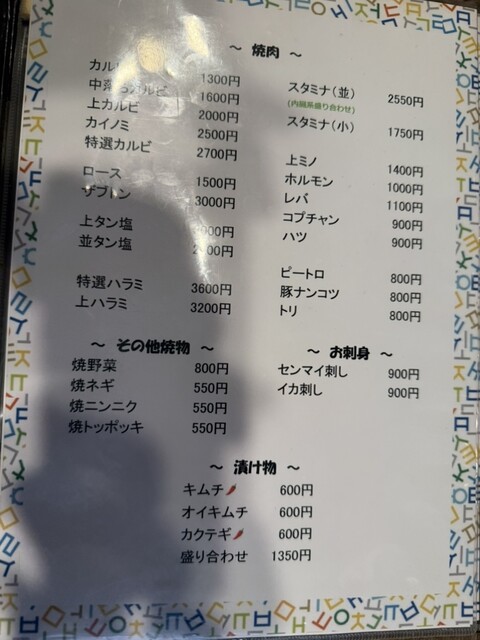 ～ 焼肉 ～
カル
1300円
中落ちカルビ 1600円
上カルビ 2000円
カイノミ 2500円
特選カルビ 2700円
ロース 1500円
ザブトン 3000円
上タン塩
並タン塩
特選ハラミ 3600円
上ハラミ 3200円
スタミナ（並） 2550円
(内臓系盛り合わせ)
スタミナ（小） 1750円
上ミノ 1400円
ホルモン 1000円
レバ 1100円
コプチャン 900円
ハツ 900円
ピートロ 800円
豚ナンコツ 800円
トリ 800円
～ その他焼物 ～
焼野菜 800円
焼ネギ 550円
焼ニンニク 550円
焼トッポッキ 550円
～ お刺身 ～
センマイ刺し 900円
イカ刺し 900円
～ 漬け物 ～
キムチ🌶 600円
オイキムチ 600円
カクテギ🌶 600円
盛り合わせ 1350円